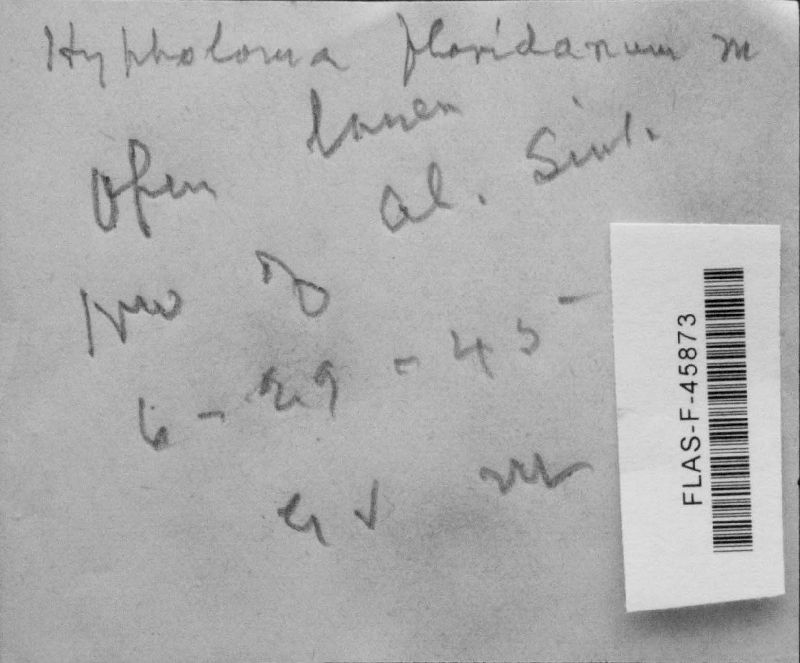 Hypholoma floridanum m
open lawn
al. Sink.
NW of
6-29-45
G V M
FLAS-F-45873